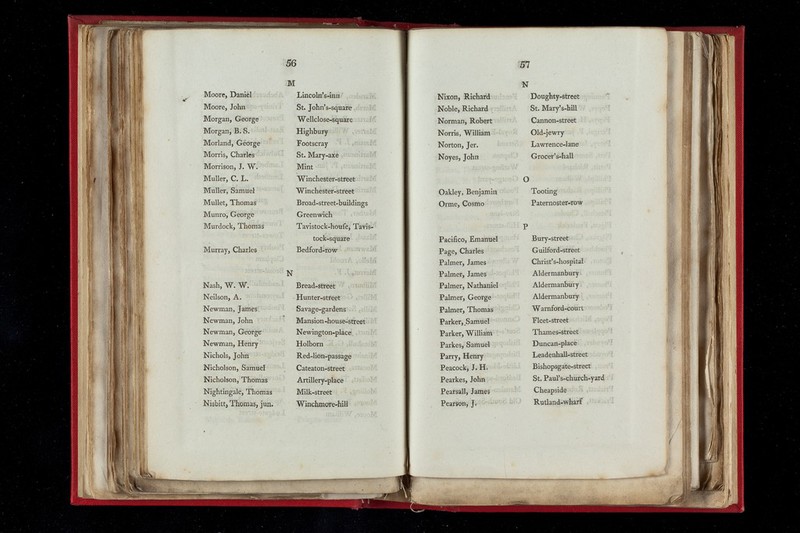 56
M
Moore, Daniel Lincoln's-inn
Moore, John St. John's-square
Morgan, George Wellclose-square
Morgan, B. S. Highbury
Morland, George Footscray
Morris, Charles St. Mary-axe
Morrison, J. W. Mint
Muller, C. L. Winchester-street
Muller, Samuel Winchester-street
Mullet, Thomas Broad-street-buildings
Munro, George Greenwich
Murdock, Thomas Tavistock-house, Tavis-
tock-square
Murray, Charles Bedford-row
N
Nash, W. W. Bread-street
Neilson, A. Hunter-street
Newman, James Savage-gardens
Newman, John Mansion-house-street
Newman, George Newington-place
Newman, Henry Holborn
Nichols, John Red-lion-passage
Nicholson, Samuel Cateaton-street
Nicholson, Thomas Artillery-place
Nightingale, Thomas Milk-street
Nisbitt, Thomas, jun. Winchmore-hill
57
N
Nixon, Richard Doughty-street
Noble, Richard St. Mary's-hill
Norman, Robert Cannon-street
Norris, William Old-jewry
Norton, Jer. Lawrence-lane
Noyes, John Grocer's-hall
O
Oakley, Benjamin Tooting
Orme, Cosmo Paternoster-row
P
Pacifico, Emanuel Bury-street
Page, Charles Guilford-street
Palmer, James Christ's-hospital
Palmer, James Aldermanbury
Palmer, Nathaniel Aldermanbury
Palmer, George Aldermanbury
Palmer, Thomas Warnford-court
Parker, Samuel Fleet-street
Parker, William Thames-street
Parkes, Samuel Duncan-place
Parry, Henry Leadenhall-street
Peacock, J. H. Bishopsgate-street
Pearkes, John St. Paul's-church-yard
Pearsall, James Cheapside
Pearson, J. Rutland-wharf